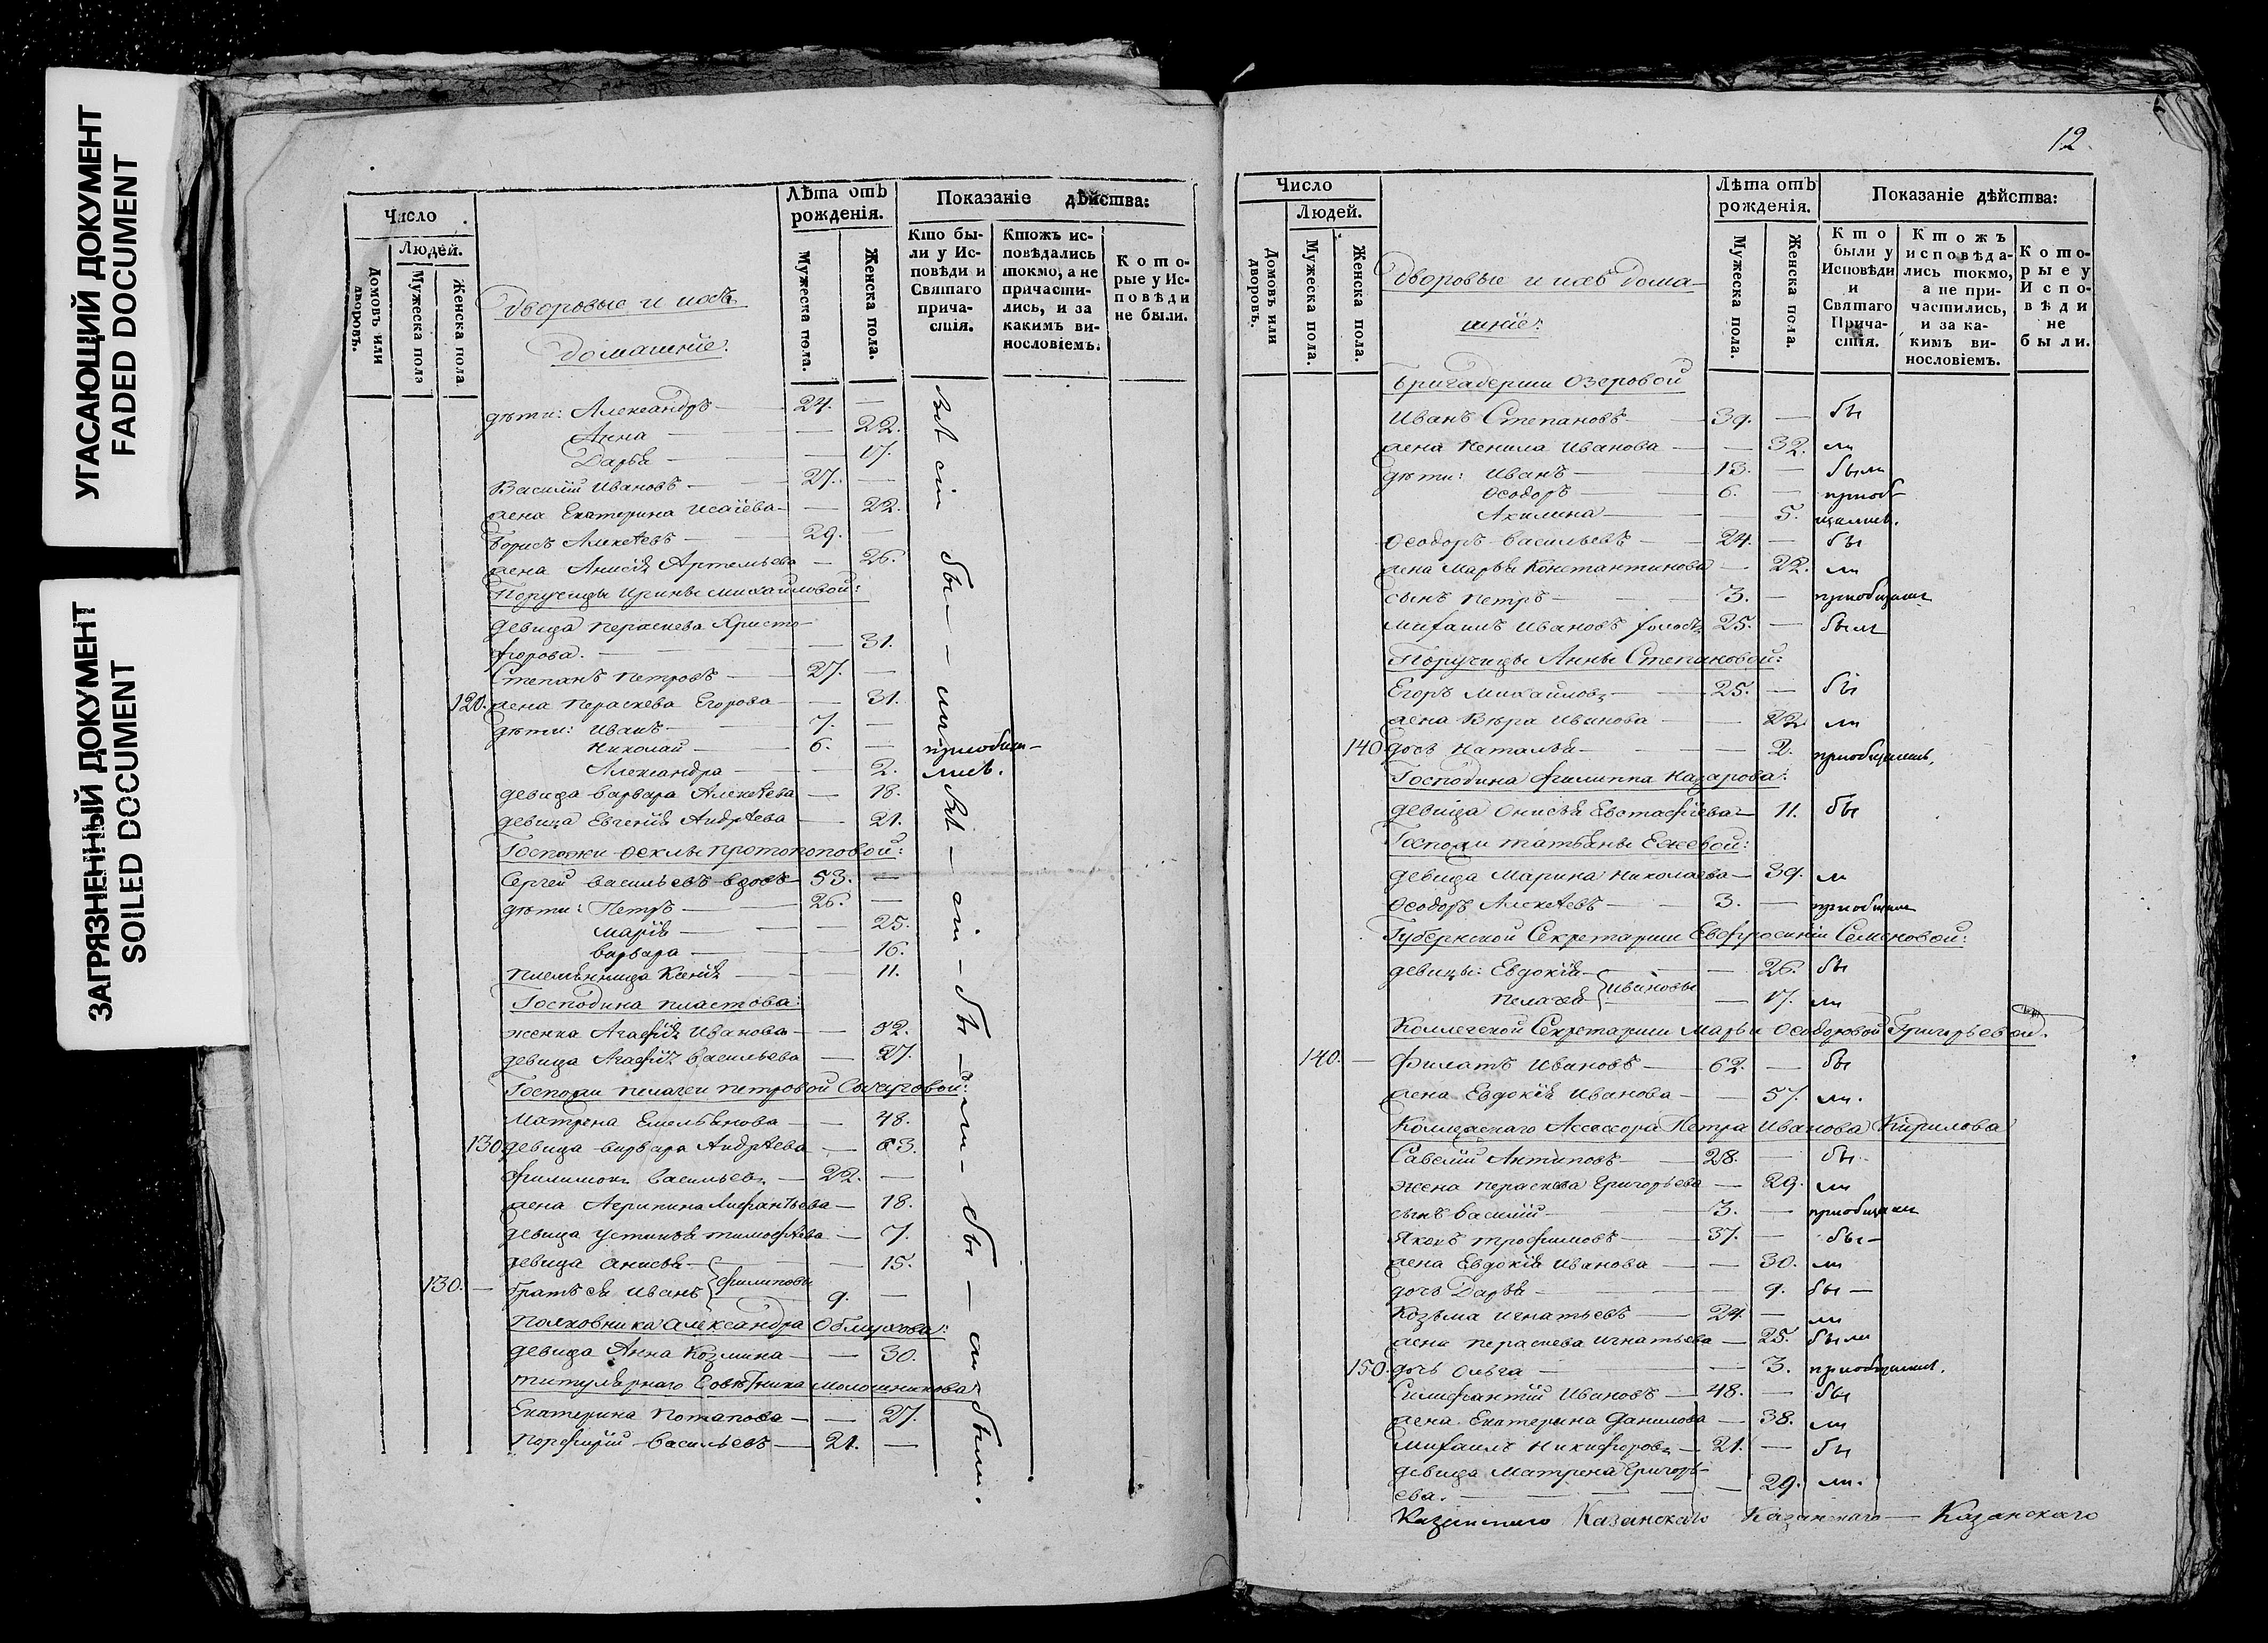 УГАСАЮЩИЙ ДОКУМЕНТ
FADED DOCUMENT
ЗАГРЯЗНЕННЫЙ ДОКУМЕНТ
SOILED DOCUMENT
Число
Людей.
Домовъ или дворовъ.
Мужеска пола
Женска пола.
Дворовые и ихъ
домашніе:
Лѣта отъ рожденія.
Мужеска пола.
Женска пола.
Показаніе дѣйства:
Кто бы-
ли у Ис-
повѣди и
Святаго
прича-
стія.
Ктожъ ис-
повѣдались
токмо, а не
причасти-
лись, и за
какимъ ви-
нословіемъ.
Кото-
рые у Ис-
повѣди
не были.
дѣти: Александръ — 24. —
Анна — 22.
Дарья — 17.
Василій Ивановъ — 27. —
жена Екатерина Исаіева — 22.
Борисъ Алексѣевъ — 29. —
жена Анисія Артемьева — 26.
Порутчицы Ирины Михайловой:
девица Параскева Христо-
форова. — 31.
Степанъ Петровъ — 27. —
120. жена Параскева Егорова — 31.
дѣти: Иванъ — 7. —
Николай — 6. — приобщи-
Александра — 2. лись.
девица Варвара Алексѣева — 18.
девица Евгенія Андрѣева — 21.
Госпожи Феклы Протопоповой:
Сергей Васильевъ вдовъ — 53. —
дѣти: Петръ — 26. —
Марія — 25.
Варвара — 16.
племянница Ксенія — 11.
Господина Пластова:
женка Агафія Иванова — 52.
девица Агафія Васильева — 27.
Госпожи Пелагеи Петровой
Матрена Емельянова — 48.
130. девица Варвара Андрѣева — 63.
Филимонъ Васильевъ — 22. —
жена Агрипина — 18.
девица Устинья Тимофѣева — 7.
девица Анисья — 15.
Филиповы
130. — братъ ея Иванъ 9. —
Полковника Александра
девица Анна Козмина — 30.
Титулярнаго Совѣтника Молошникова:
Екатерина Потапова — 27.
Порфирій Васильевъ — 21. —
12.
Число
Людей.
Домовъ или дворовъ.
Мужеска пола.
Женска пола.
Дворовые и ихъ дома-
шніе:
Лѣта отъ рожденія.
Мужеска пола.
Женска пола.
Показаніе дѣйства:
Кто
были у
Исповѣди
и
Святаго
Прича-
стія.
Ктожъ
исповѣда-
лись токмо,
а не при-
частились,
и за ка-
кимъ ви-
нословіемъ.
Кото-
рые у
Испо-
вѣди
не
были.
Бригадерши Озеровой
Иванъ Степановъ — 39. — бы
жена Неонила Иванова — 32. ли
дѣти: Иванъ — 13. — были
Феодоръ — 6. — приоб-
Акилина — 5. щались.
Феодоръ Васильевъ — 24. — бы
жена Марья Константинова — 22. ли
сынъ Петръ — 3. — приобщали
Михаилъ Ивановъ холостъ 25. — былъ
Порутчицы Анны Степановой:
Егоръ Михайловъ — 25. — бы
жена Вѣра Иванова — 22. ли
140. дочь Наталья — 2. приобщались.
Господина Филиппа Назарова:
девица Онисья Евстафіева — 11. бы
Госпожи Татьяны Ежевой:
девица Марина Николаева — 39. ли
Феодоръ Алексѣевъ — 3. — приобщали
Губернской Секретарши Евфросиніи Семеновой:
девицы: Евдокія — 26. бы
Ивановы
Пелагея — 17. ли
Коллегской Секретарши Марьи Феодоровой Григорьевой.
140. — Филатъ Ивановъ — 62. — бы
жена Евдокія Иванова — 57. ли.
Коллежскаго Асессора Петра Иванова Кирилова
Савелій Антиповъ — 28. — бы.
жена Параскева Григорьева — 29. ли
сынъ Василій — 3. — приобщали
Яковъ Трофимовъ — 37. — бы —
жена Евдокія Иванова — 30. ли
дочь Дарья — 9. бы —
Козьма Игнатьевъ — 24. — ли
жена Параскева Игнатьева — 25. были
150. дочь Ольга — 3. приобщались.
Ивановъ — 48. — бы
жена Екатерина Данилова — 38. ли
Михаилъ Никифоровъ — 21. — бы
девица Матрена Григорь-
ева. — 29. ли.
Казанскаго Казанскаго Казанскаго — Казанскаго